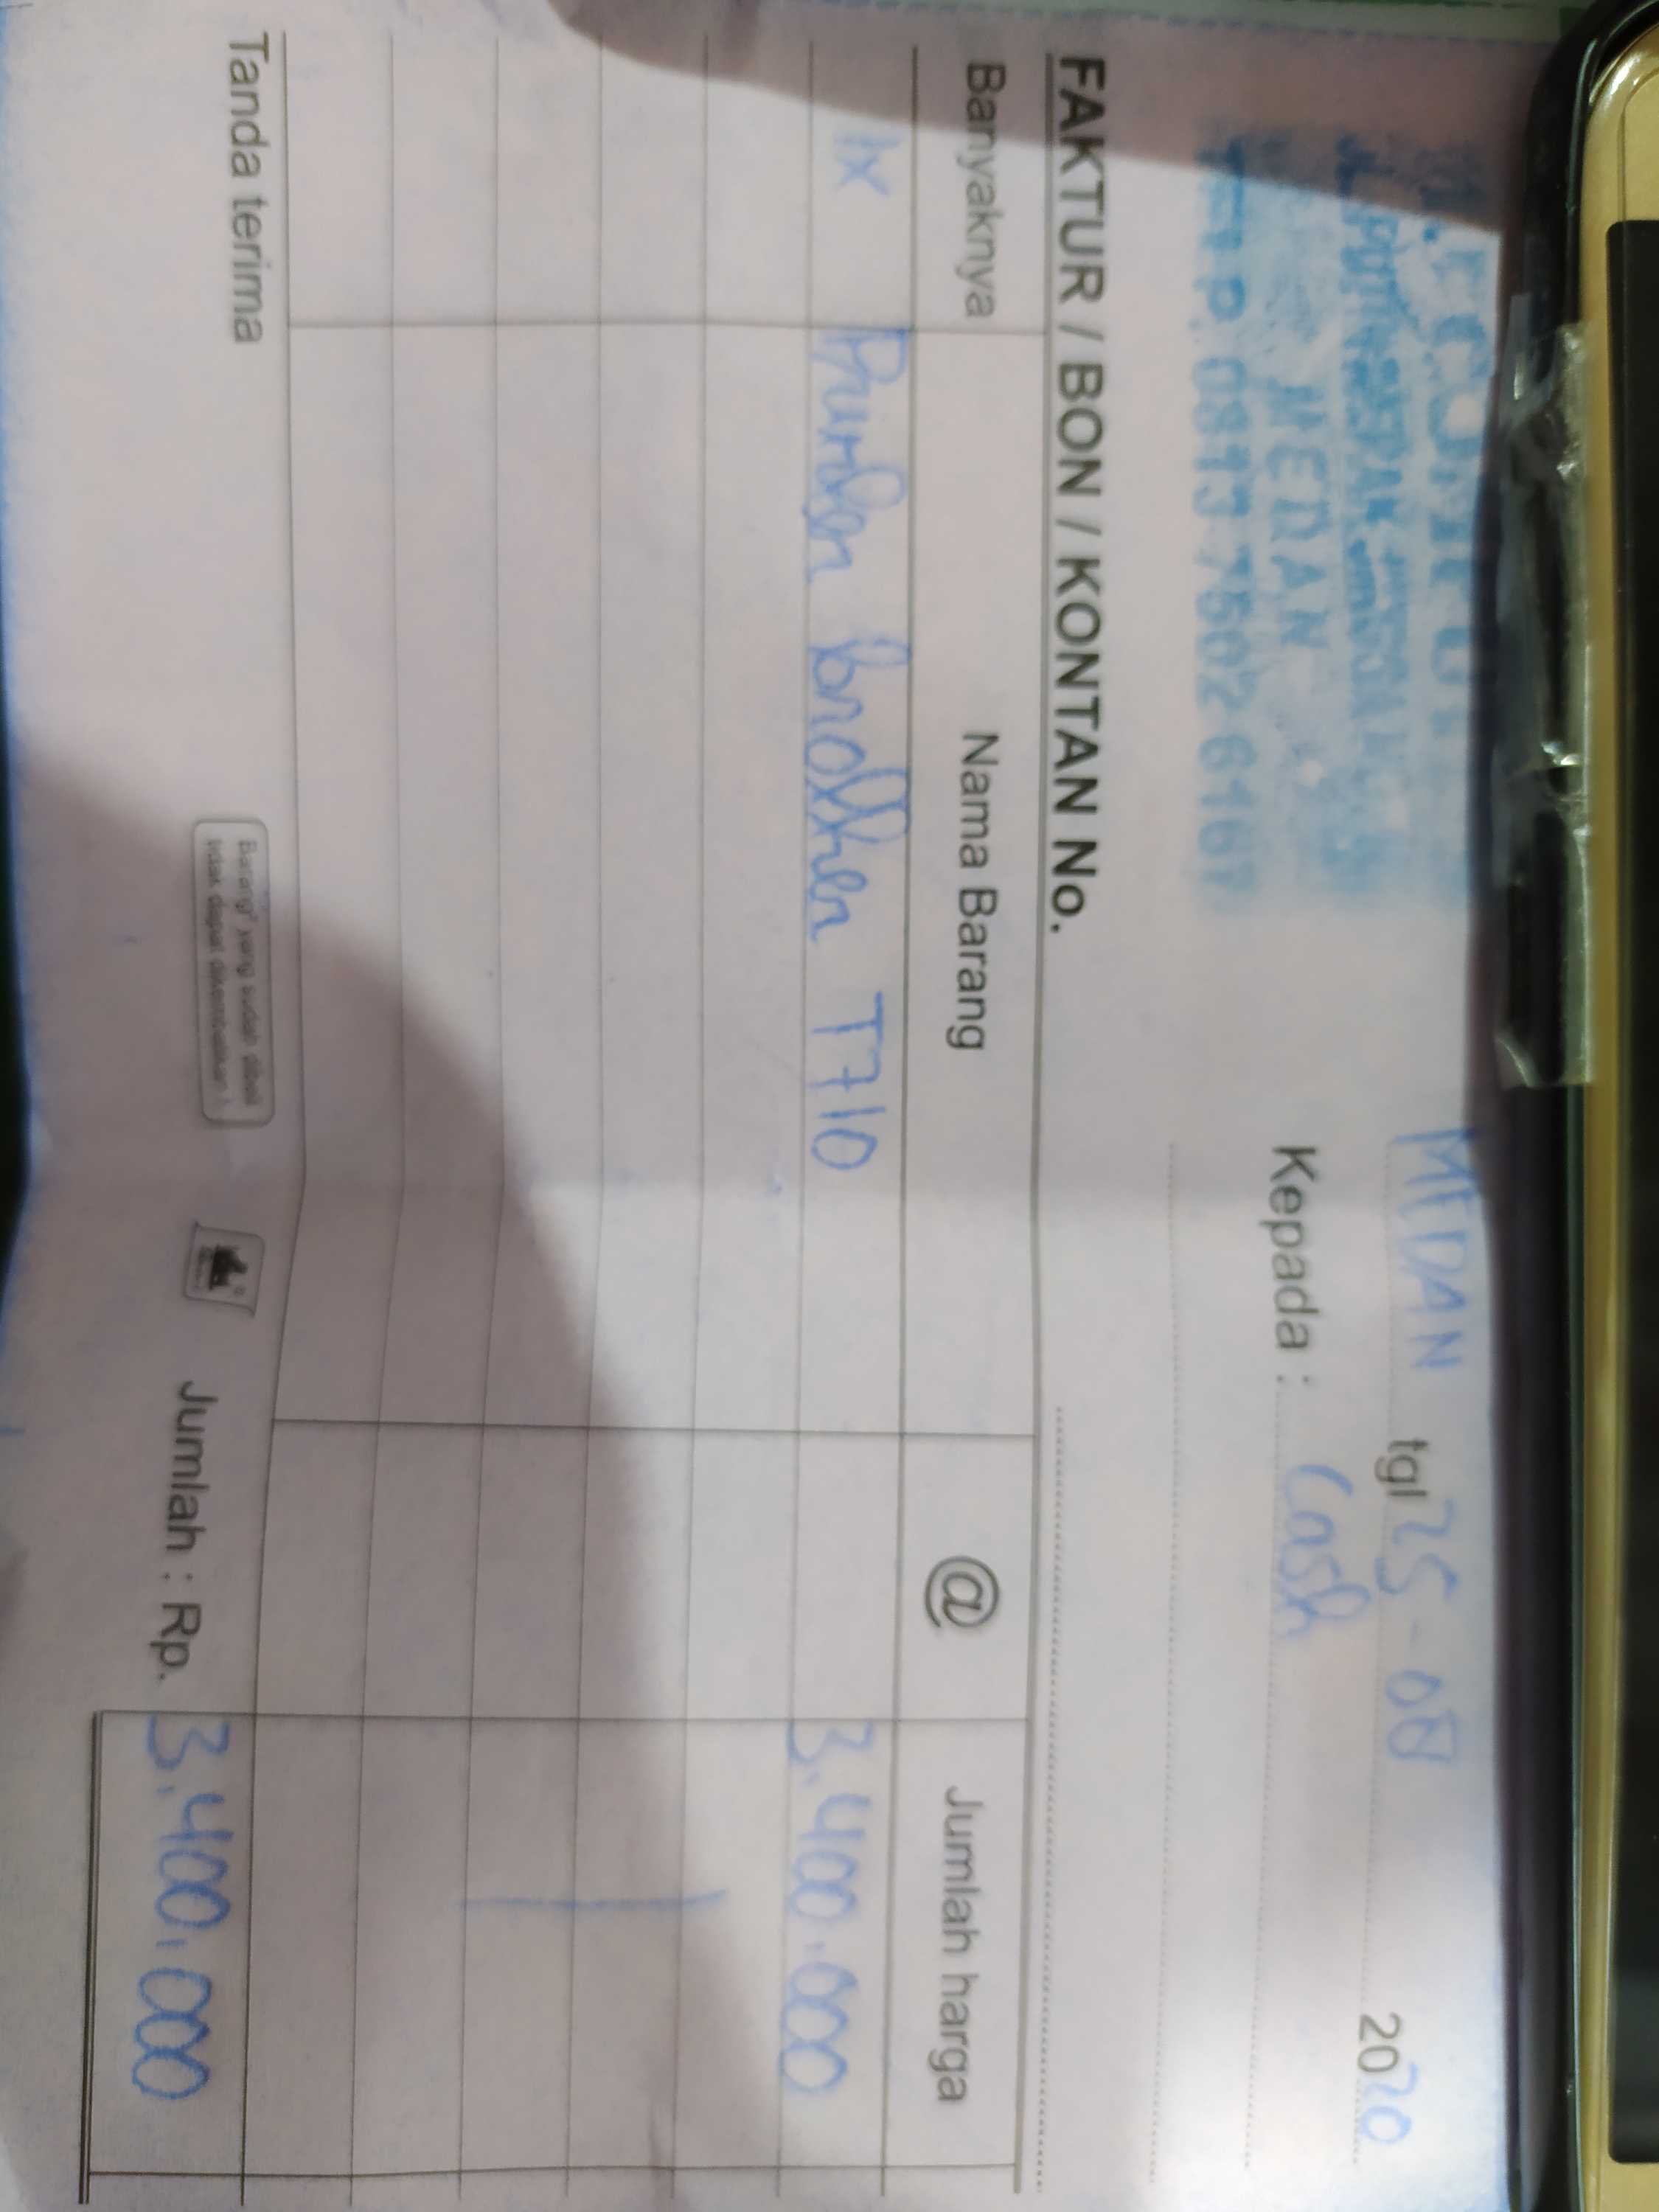 MEDAN tgl 25-08 2020
MEDAN
Kepada : Cash
FAKTUR / BON / KONTAN No.
Banyaknya Nama Barang @ Jumlah harga
1x Printer brother T710 3.400.000
Tanda terima
Barang² yang sudah dibeli
tidak dapat dikembalikan !
Jumlah : Rp. 3.400.000